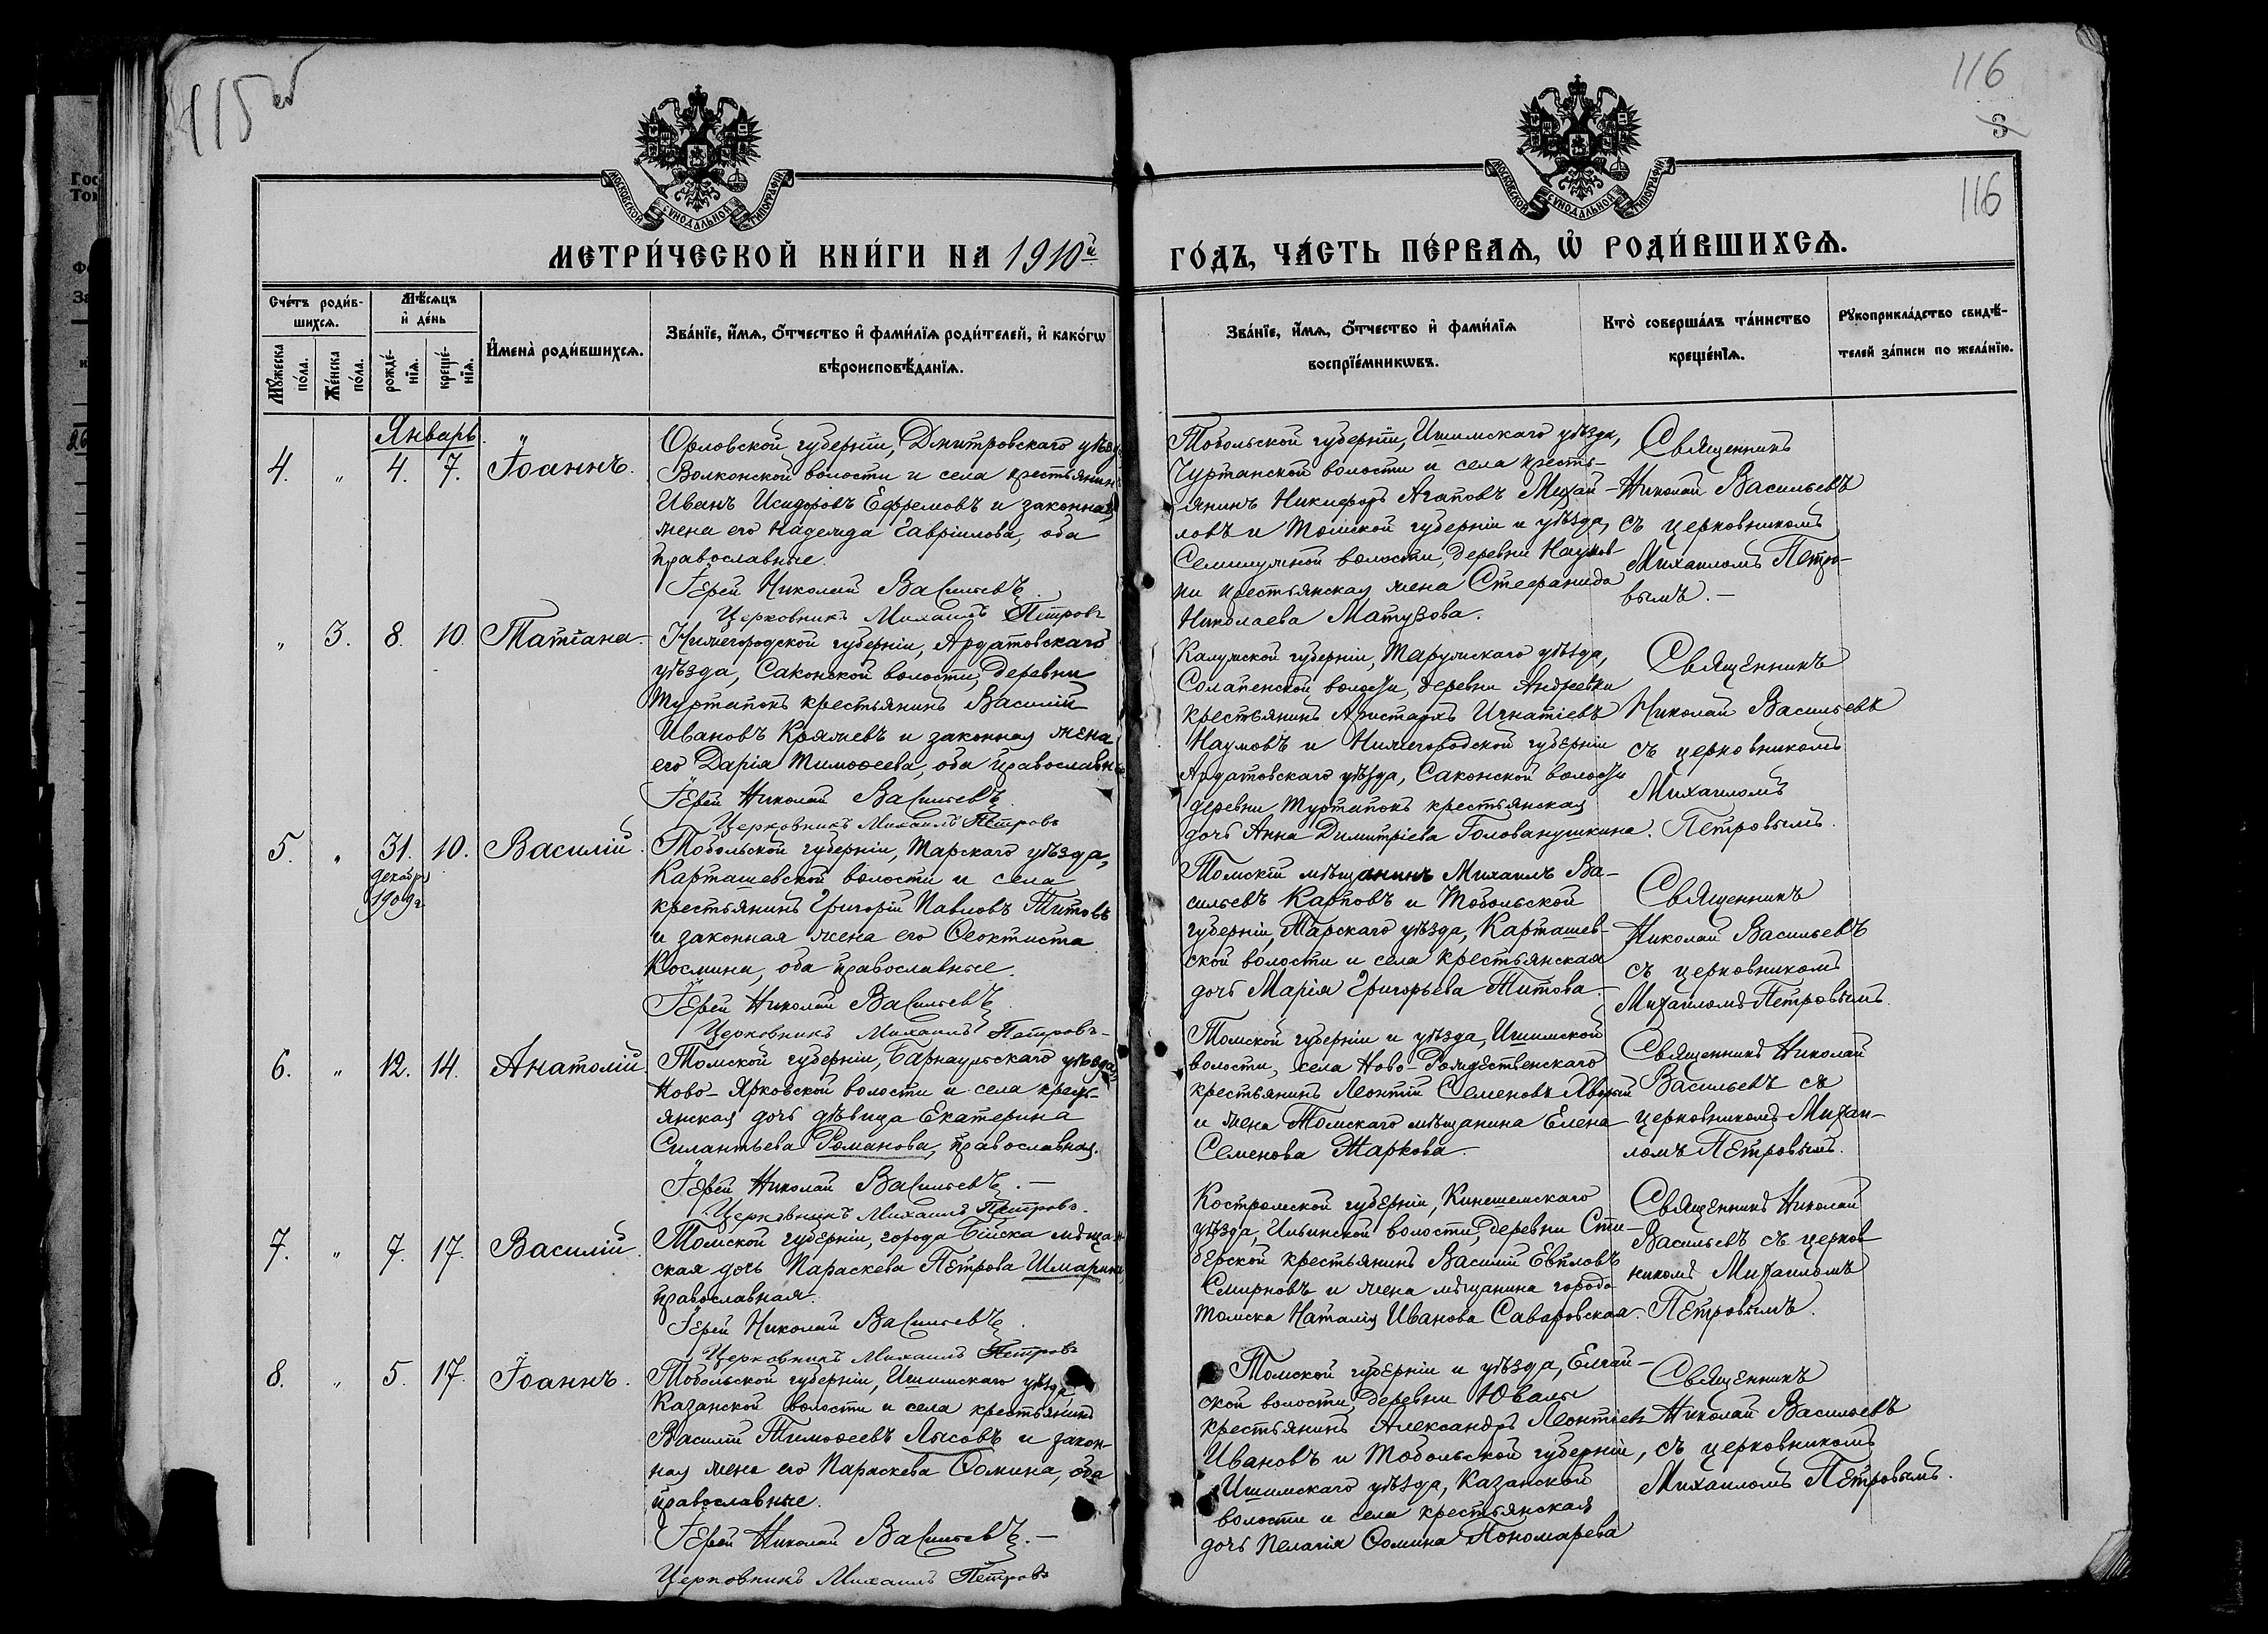 115об
116
3
116
МОСКОВСКОЙ СѴНОДАЛЬНОЙ ТИПОГРАФІИ
МОСКОВСКОЙ СѴНОДАЛЬНОЙ ТИПОГРАФІИ
МЕТРИ́ЧЕСКОЙ КНИ́ГИ НА 1910й
ГО́ДЪ, ЧА́СТЬ ПЕ́РВАѦ, Ѡ҆ РОДИ́ВШИХСѦ.
Сче́тъ роди́в-
шихсѧ.
Мꙋ́жеска по́ла.
Же́нска по́ла.
Мѣ́сѧцъ
и҆ де́нь
рожде́-
нїѧ.
креще́-
нїѧ.
И҆мена̀ роди́вшихсѧ.
Зва́нїе, и҆́мѧ, ѻ҆́тчество и҆ фами́лїѧ роди́телей, и҆ како́гѡ
вѣроисповѣ́данїѧ.
Зва́нїе, и҆́мѧ, ѻ҆́тчество и҆ фами́лїѧ
воспрїе́мникѡвъ.
Кто̀ соверша́лъ та́инство
креще́нїѧ.
Рꙋкоприкла́дство свидѣ́-
телей за́писи по жела́нїю.
Январь.
4. " 4. 7. Іоаннъ.
Орловской губерніи, Дмитровскаго уѣзда
Волконской волости и села крестьянинъ
Иванъ Исидоровъ Ефремовъ и законная
жена его Надежда Гавріилова, оба
православные.
Іерей Николай Васильевъ.
Церковникъ Михаилъ Петровъ
Тобольской губерніи, Ишимскаго уѣзда,
Чуртанской волости и села кресть-
янинъ Никифоръ Агаповъ Михай-
ловъ и Томской губерніи и уѣзда,
Семилужной волости, деревни Наумов-
ки крестьянская жена Стефанида
Николаева Матузова.
Священникъ
Николай Васильевъ
съ церковникомъ
Михаиломъ Петро-
вымъ.-
" 3. 8. 10. Татіана.
Нижегородской губерніи, Ардатовскаго
уѣзда, Саконской волости, деревни
Туртапокъ крестьянинъ Василій
Ивановъ Кряжевъ и законная жена
его Дарія Тимоѳеева, оба православные
Іерей Николай Васильевъ.
Церковникъ Михаилъ Петровъ
Калужской губерніи, Тарускаго уѣзда,
Солопенской волости, деревни Андреевки
крестьянинъ Аристархъ Игнатіевъ
Наумовъ и Нижегородской губерніи
Ардатовскаго уѣзда, Саконской волости
деревни Туртапокъ крестьянская
дочь Анна Димитріева Голованушкина.
Священникъ
Николай Васильевъ
съ церковникомъ
Михаиломъ
Петровымъ.
5. " 31. 10. Василій.
декабря
1909г.
Тобольской губерніи, Тарскаго уѣзда,
Карташевской волости и села
крестьянинъ Григорій Павловъ Титовъ
и законная жена его Ѳеоктиста
Космина, оба православные.
Іерей Николай Васильевъ.
Церковникъ Михаилъ Петровъ-
Томскій мѣщанинъ Михаилъ Ва-
сильевъ Карповъ и Тобольской
губерніи, Тарскаго уѣзда, Карташев-
ской волости и села крестьянская
дочь Марія Григорьева Титова.-
Священникъ
Николай Васильевъ
съ церковникомъ
Михаиломъ Петровымъ.
6. " 12. 14. Анатолій.
Томской губерніи, Барнаульскаго уѣзда,
Ново-Ярковской волости и села кресть-
янская дочь дѣвица Екатерина
Силантьева Романова, православная.
Іерей Николай Васильевъ.-
Церковникъ Михаилъ Петровъ.
Томской губерніи и уѣзда, Ишимской
волости, села Ново-Рождественскаго
крестьянинъ Леонтій Семеновъ Хворый
и жена Томскаго мѣщанина Елена
Семенова Жаркова.-
Священникъ Николай
Васильевъ съ
церковникомъ Михаи-
ломъ Петровымъ.
7. " 7. 17. Василій.
Томской губерніи, города Бійска мѣщан-
ская дочь Параскева Петрова Шмарина
православная.
Іерей Николай Васильевъ.
Церковникъ Михаилъ Петровъ
Костромской губерніи, Кинешемскаго
уѣзда, Ильинской волости, деревни Сти-
берской крестьянинъ Василій Евпловъ
Смирновъ и жена мѣщанина города
Томска Наталія Иванова Саваровская.
Священникъ Николай
Васильевъ съ церков
никомъ Михаиломъ
Петровымъ.
8. " 5. 17. Іоаннъ.
Тобольской губерніи, Ишимскаго уѣзда,
Казанской волости и села крестьянинъ
Василій Тимоѳеевъ Лысовъ и закон-
ная жена его Параскева Ѳомина, оба
православные.
Іерей Николай Васильевъ.-
Церковникъ Михаилъ Петровъ
Томской губерніи и уѣзда, Елгай-
ской волости, деревни Ювалы
крестьянинъ Александръ Леонтіевъ
Ивановъ и Тобольской губерніи,
Ишимскаго уѣзда, Казанской
волости и села крестьянская
дочь Пелагія Ѳомина Пономарева
Священникъ
Николай Васильевъ
съ церковникомъ
Михаиломъ Петровымъ.